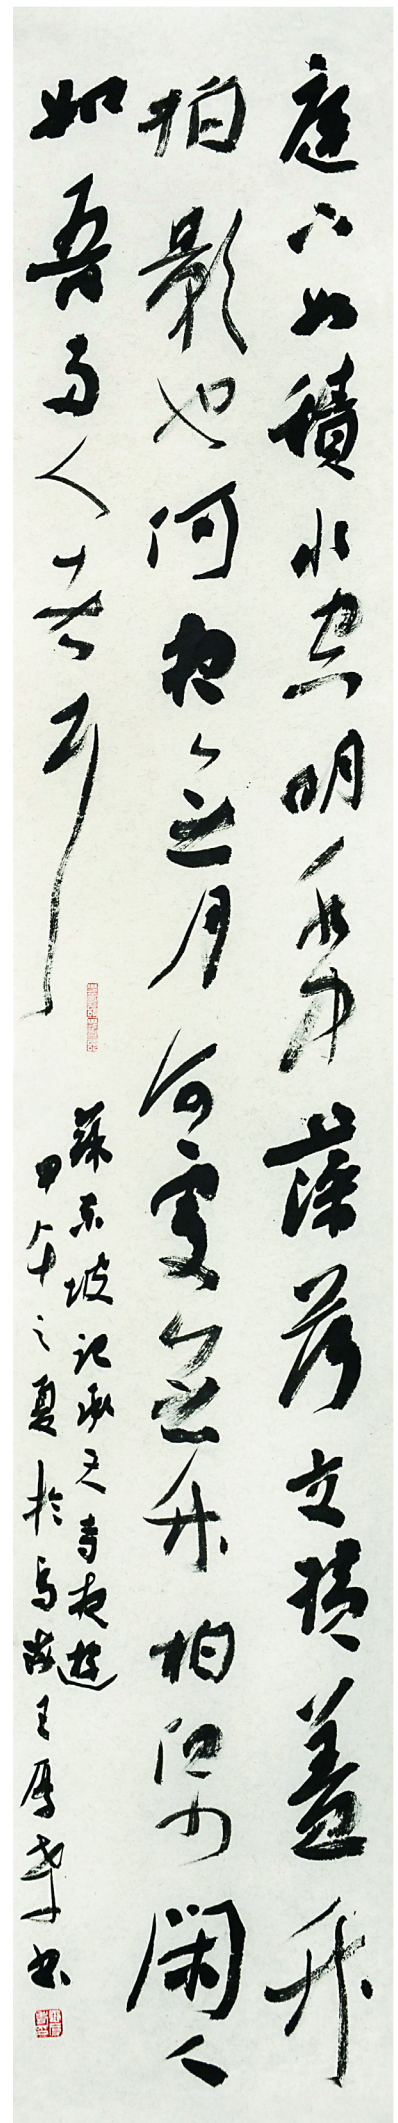 庭下如積水空明水中藻荇交横蓋竹
柏影也何夜無月何處無竹柏但少閑人
如吾兩人者耳
蘇東坡記承天寺夜遊
甲午之夏於烏海王厚書